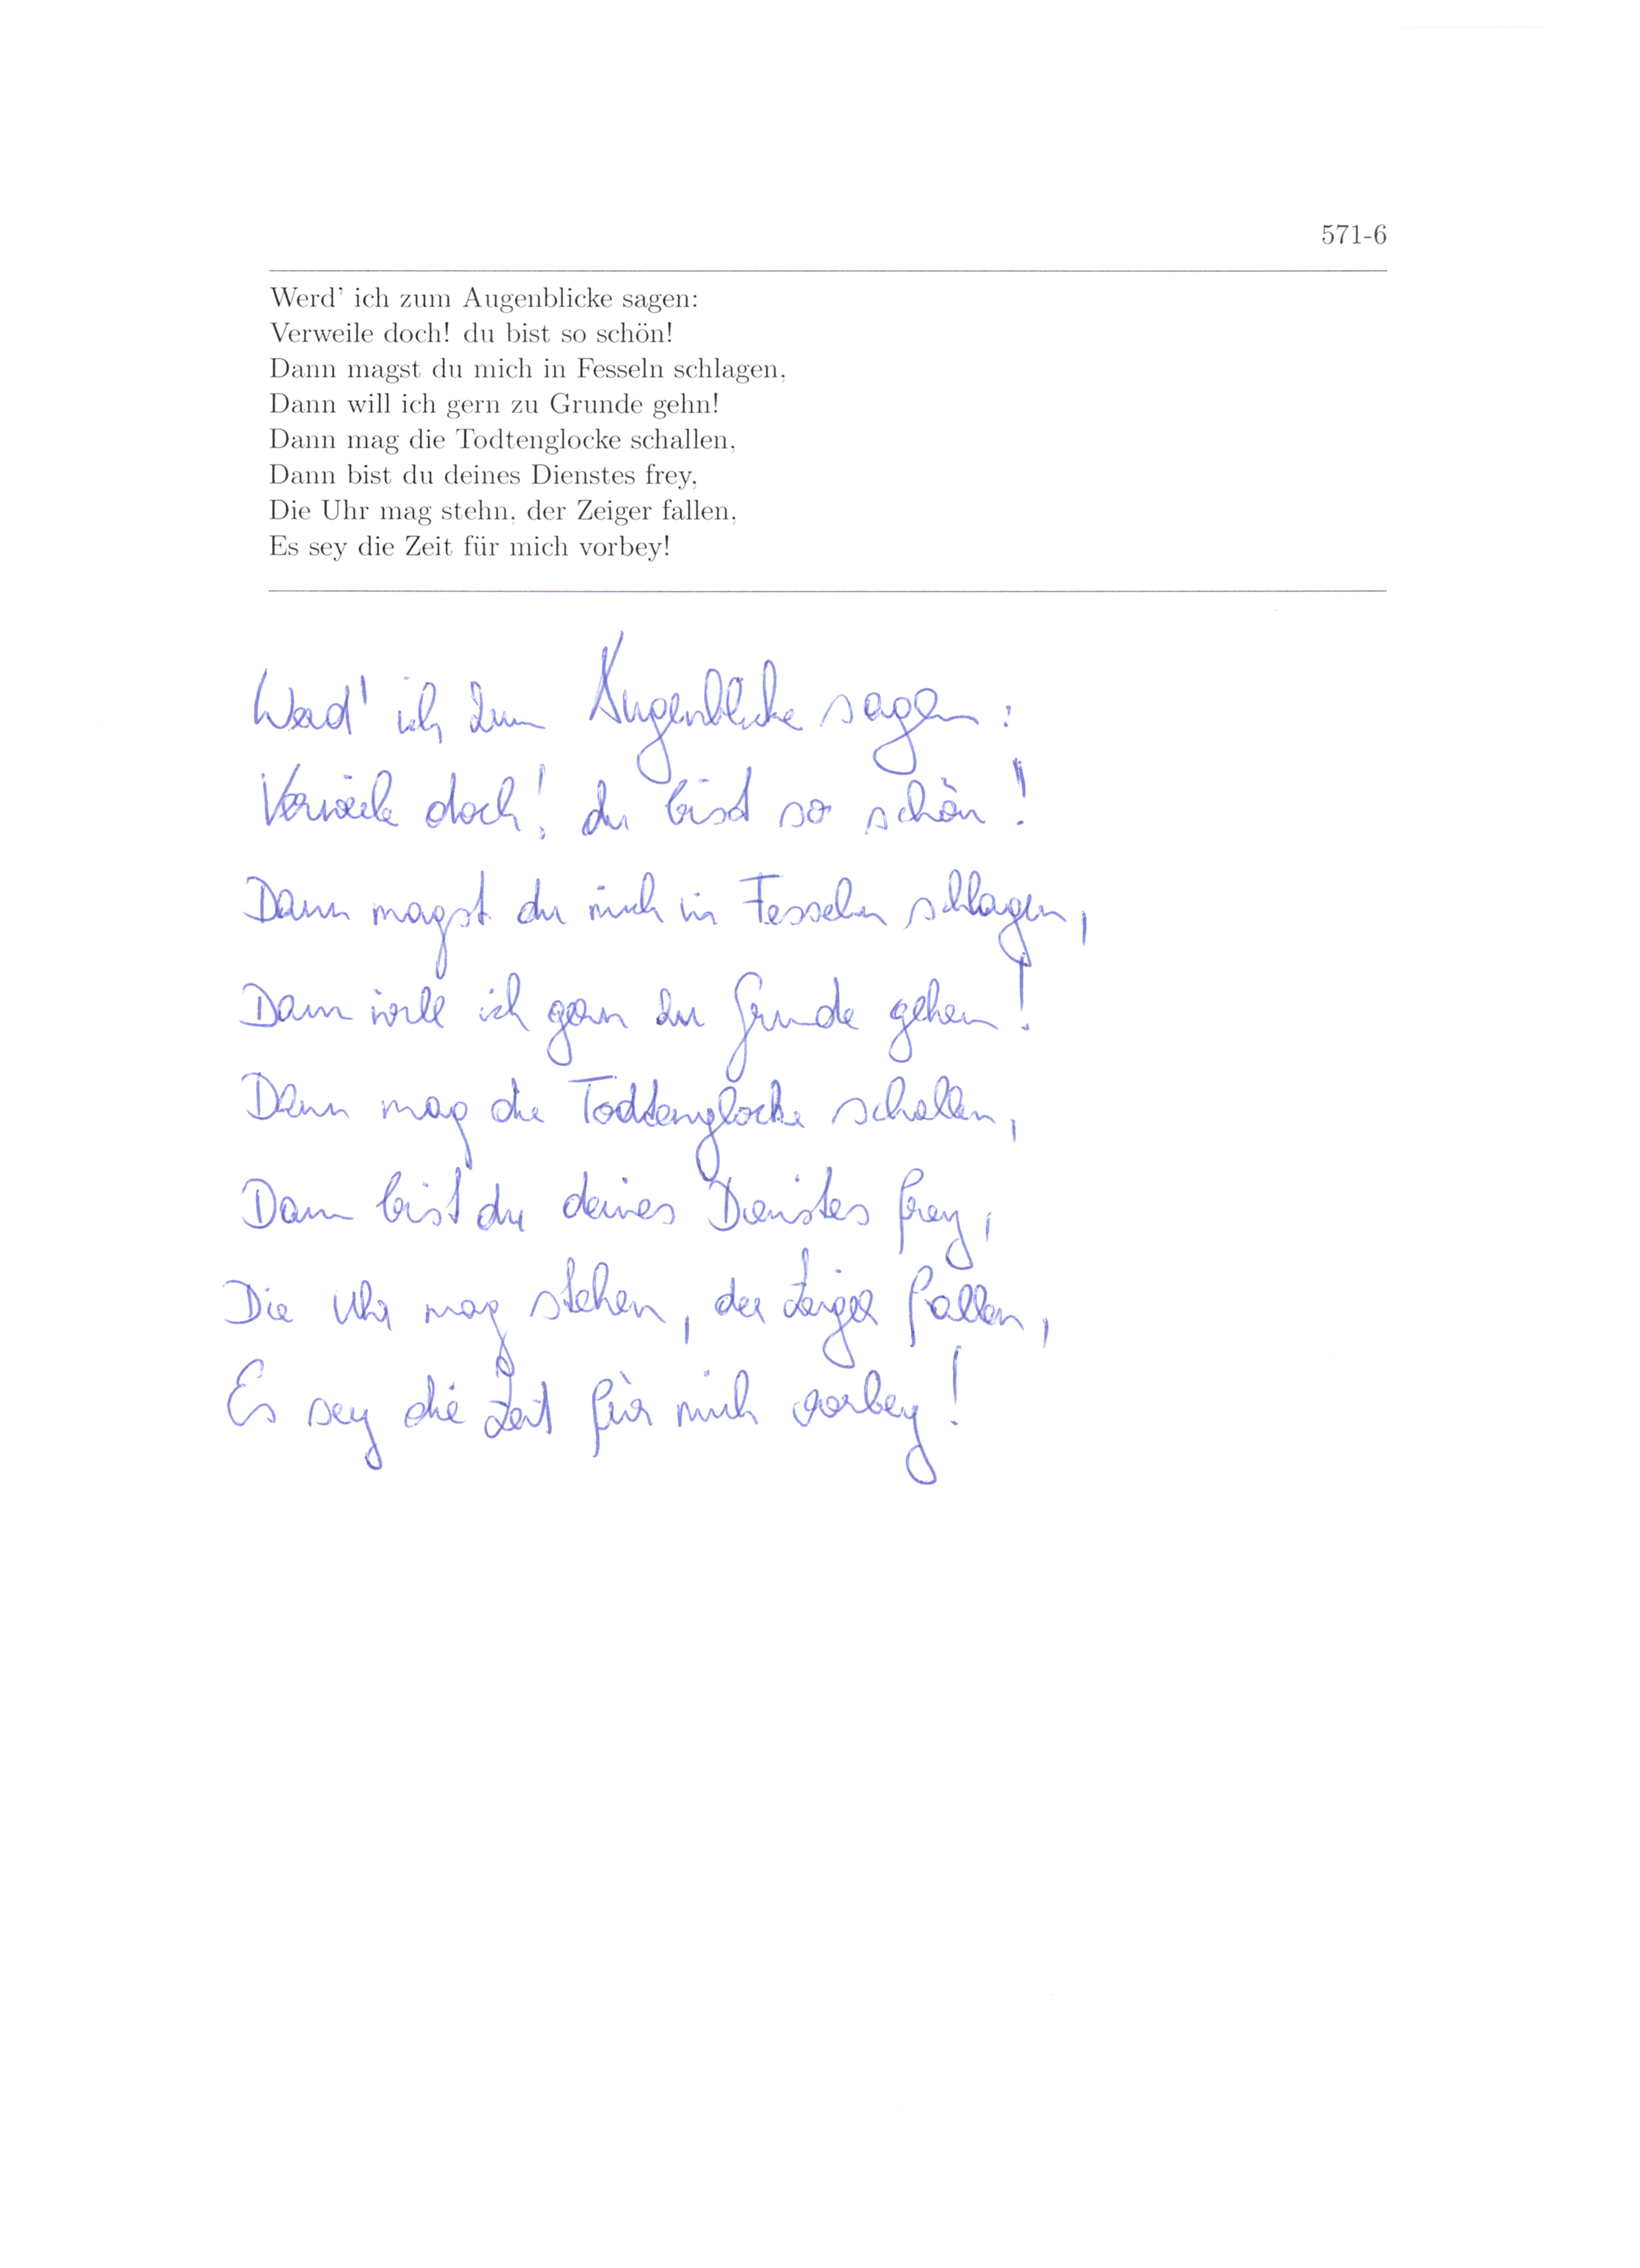 571-6
Werd' ich zum Augenblicke sagen:
Verweile doch! du bist so schön!
Dann magst du mich in Fesseln schlagen,
Dann will ich gern zu Grunde gehn!
Dann mag die Todtenglocke schallen,
Dann bist du deines Dienstes frey,
Die Uhr mag stehn, der Zeiger fallen,
Es sey die Zeit für mich vorbey!
Werd' ich zum Augenblicke sagen:
Verweile doch! du bist so schön!
Dann magst du mich in Fesseln schlagen,
Dann will ich gern zu Grunde gehen!
Dann mag die Todtenglocke schallen,
Dann bist du deines Dienstes frey,
Die Uhr mag stehen, der Zeiger fallen,
Es sey die Zeit für mich vorbey!